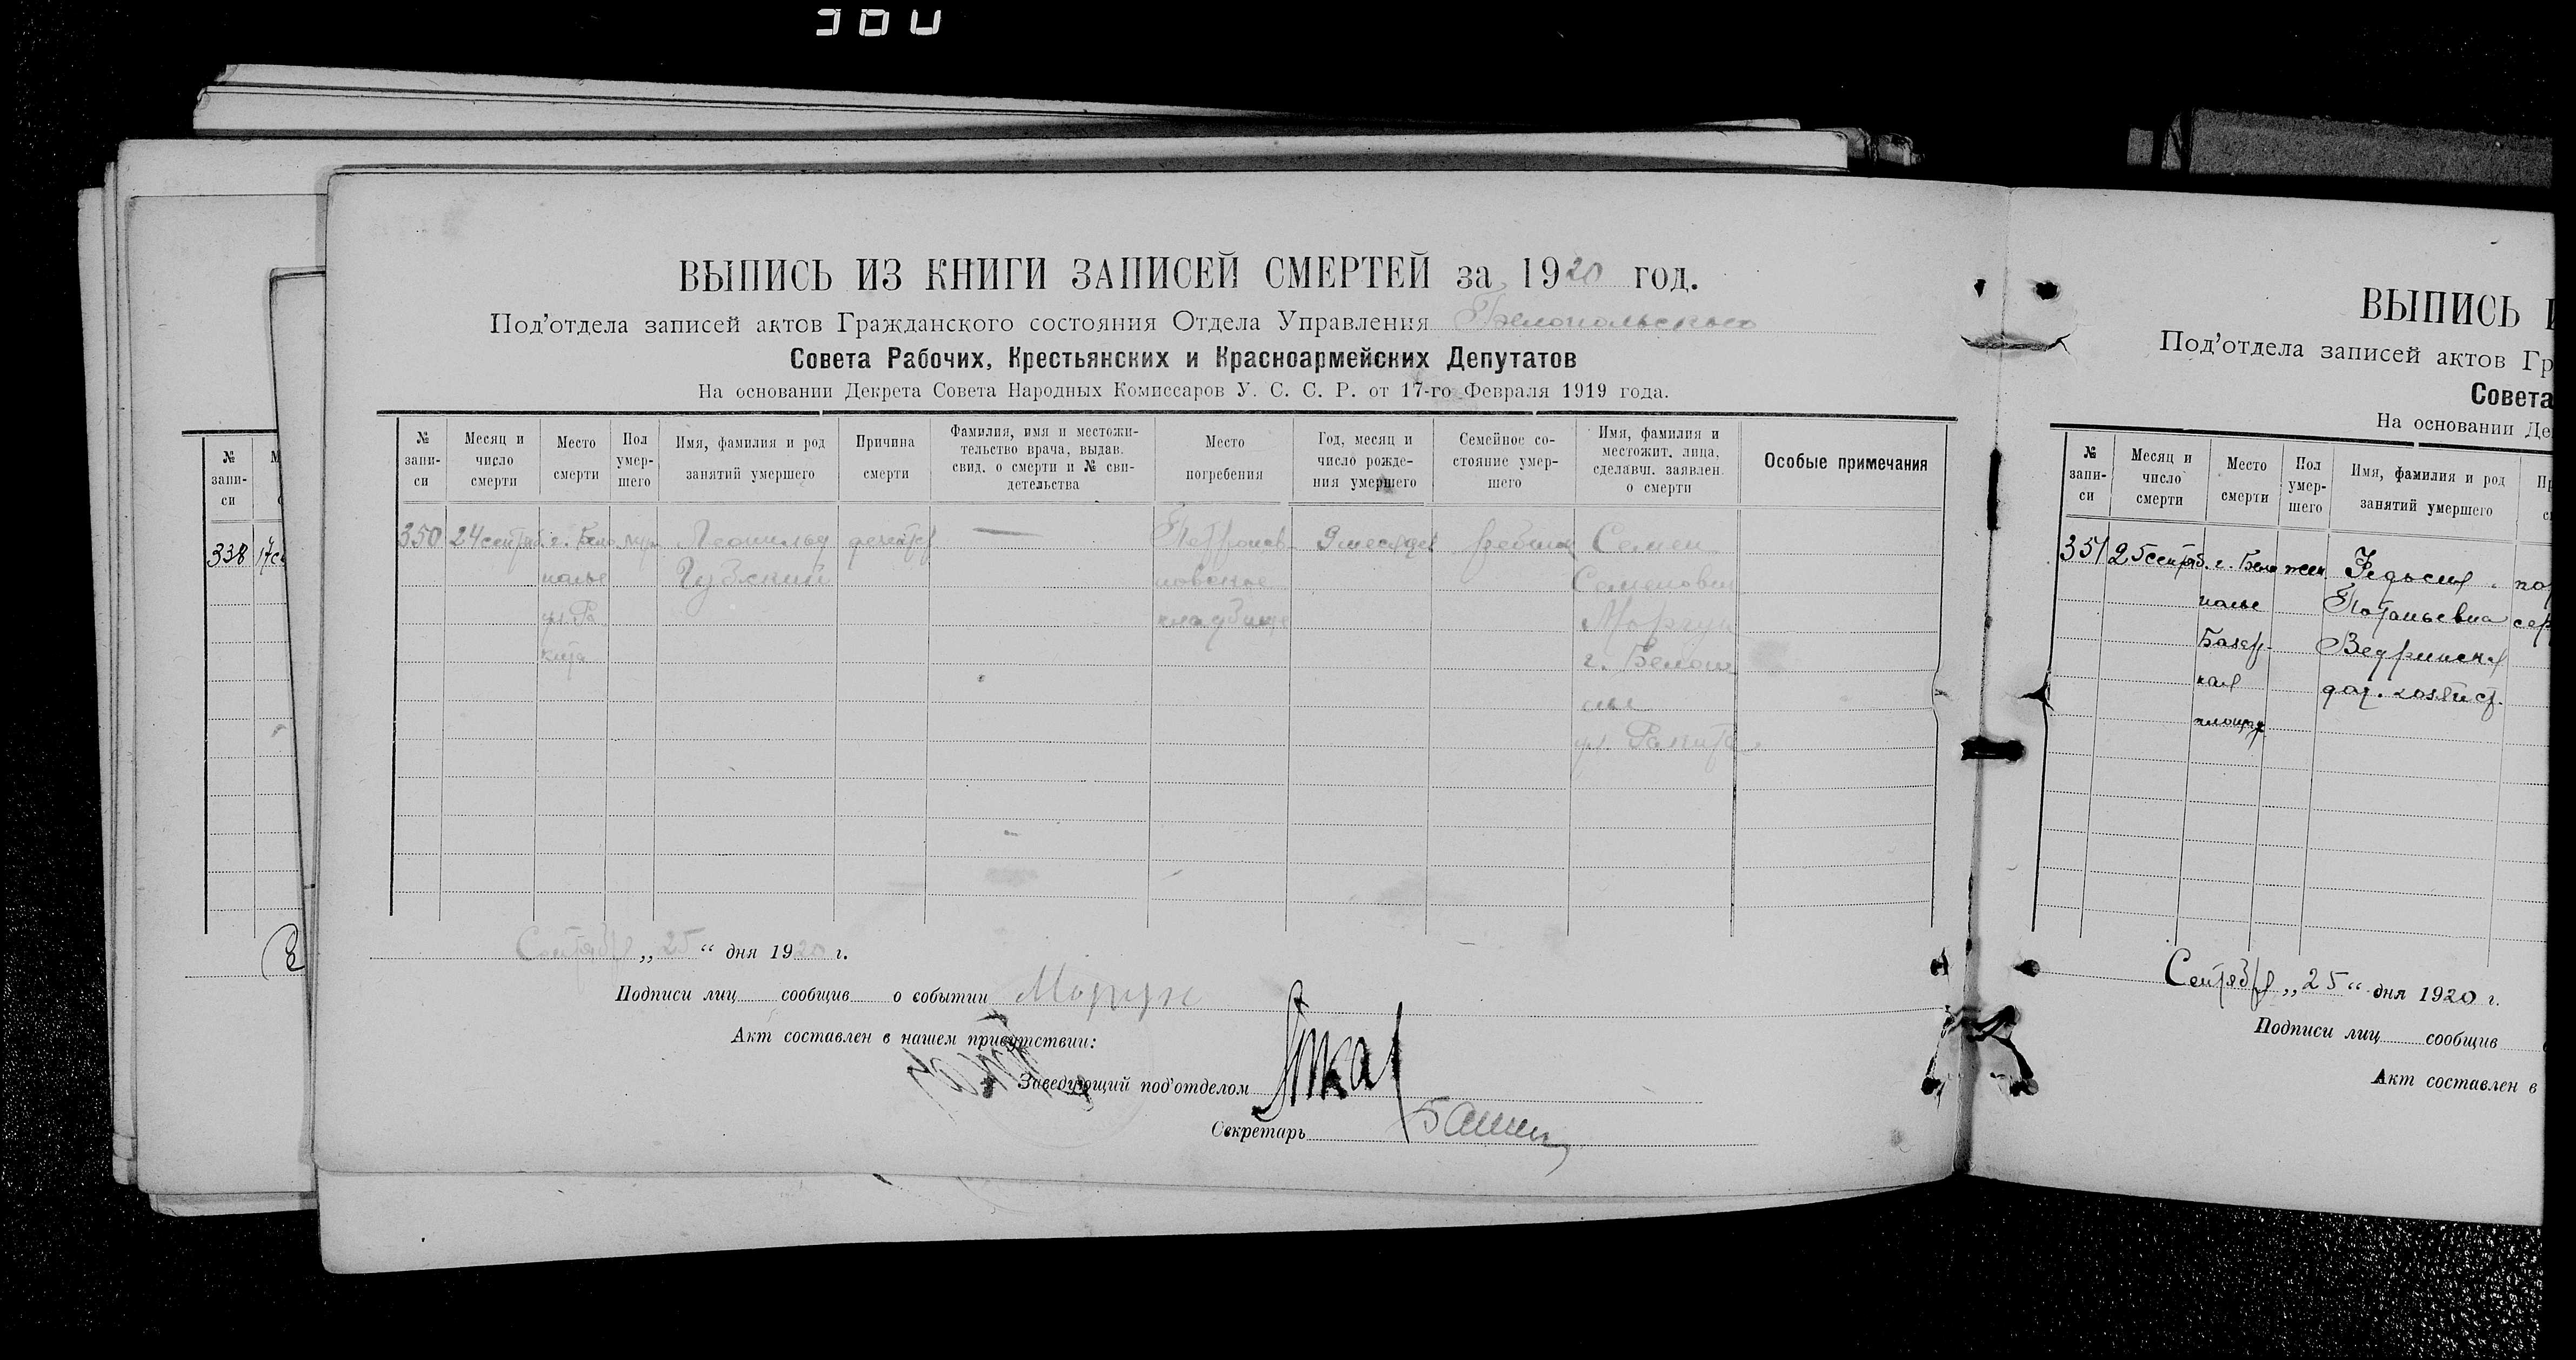 300
ВЫПИСЬ ИЗ КНИГИ ЗАПИСЕЙ СМЕРТЕЙ за 1920 год.
Под’отдела записей актов Гражданского состояния Отдела Управления Белопольского
Совета Рабочих, Крестьянских и Красноармейских Депутатов
На основании Декрета Совета Народных Комиссаров У. С. С. Р. от 17-го Февраля 1919 года.
№ запи- си
Месяц и число смерти
Место смерти
Пол умер- шего
Имя, фамилия и род занятий умершего
Причина смерти
Фамилия, имя и местожи- тельство врача, выдав. свид. о смерти и № сви- детельства
Место погребения
Год, месяц и число рожде- ния умершего
Семейное со- стояние умер- шего
Имя, фамилия и местожит. лица, сделавш. заявлен. о смерти
Особые примечания
350 24 сентяб. г. Бело муж Леонильд —
9 месяцев ребенок Семен
полье Губский
Семенович
кладбище Моргун
г. Белопо
лье
ул. Ракита
Сентября „ 25 “ дня 1920 г.
Подписи лиц сообщив о событии Моргун
Акт составлен в нашем присутствии:
Заведующий под’отделом
Секретарь
№ запи- си
338 17 се
ВЫПИСЬ
Под’отдела записей актов Гр
Совета
На основании Де
№ запи- си
Месяц и число смерти
Место смерти
Пол умер- шего
Имя, фамилия и род занятий умершего
351 25 сентяб. г. Бело жен
полье Потапьевна
Базар-
ная
площад
Сентября „ 25 “ дня 1920 г.
Подписи лиц сообщив
Акт составлен в